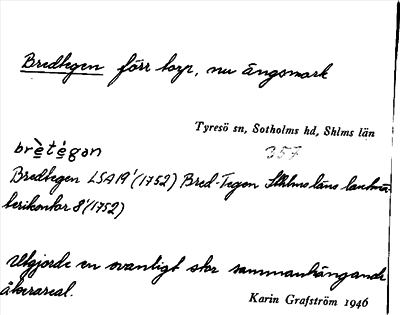 Bredtegen förr torp, nu ängsmark
Tyresö sn, Sotholms hd, Shlms län
brètégən 357
Bredtegen LSA 19¹ (1752) Bred-Tegen Sthlms läns lantmä-
terikontor 8¹ (1752)
Utgjorde en ovanligt stor sammanhängande
åkerareal.
Karin Grafström 1946